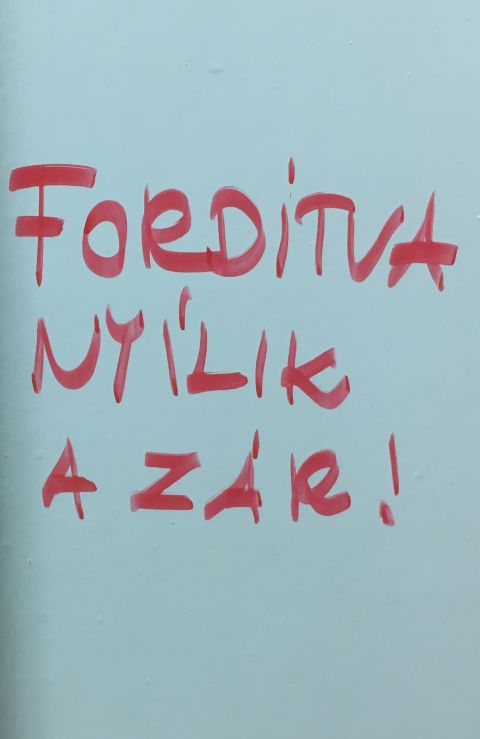 FORDÍTVA
NYÍLIK
A ZÁR!